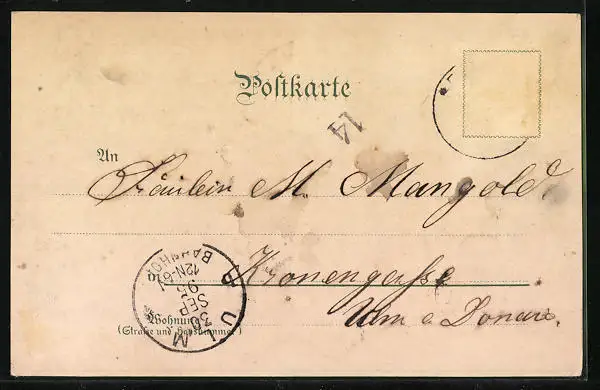 Postkarte
14
An
Fräulein M. Mangold.
in Kronengasse
Ulm a Donau.
Wohnung
(Straße und Hausnummer)
ULM
BAHNHOF
12N-6V
95
SEP
30